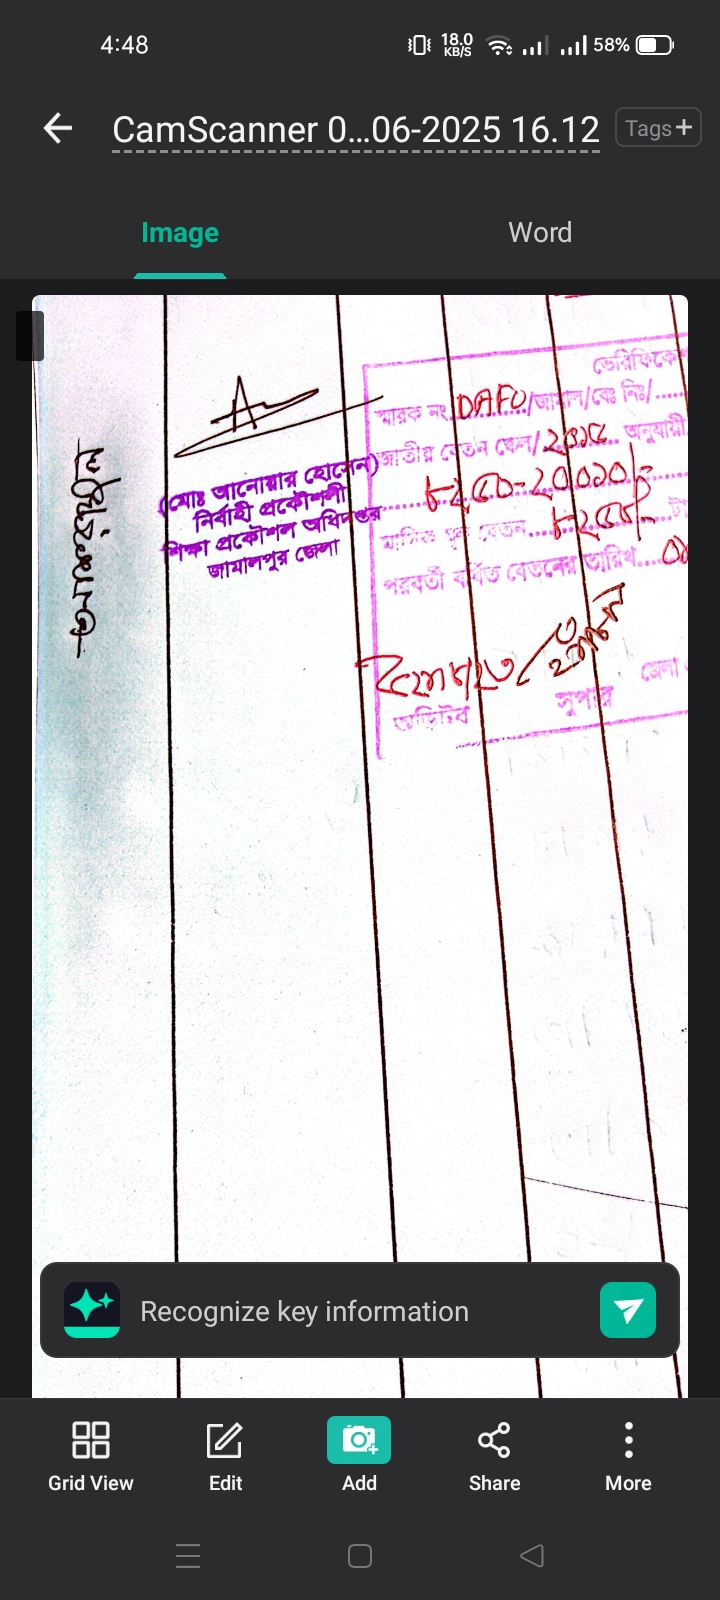 4:48
18.0 KB/S
58%
CamScanner 0...06-2025 16.12
Tags+
Image
Word
ভেরিফিকে
স্মারক নং DAFO/জামাল/বেঃ নিঃ/......
জাতীয় বেতন স্কেল/ ২০১৫ অনুযায়ী
৮২৫০-২০০১০/-
মাসিক মূল বেতন...
পরবর্তী বর্ধিত বেতনের তারিখ....
অডিটর
সুপার
জেলা
(মোঃ আনোয়ার হোসেন)
নির্বাহী প্রকৌশলী
শিক্ষা প্রকৌশল অধিদপ্তর
জামালপুর জেলা
Recognize key information
Grid View
Edit
Add
Share
More